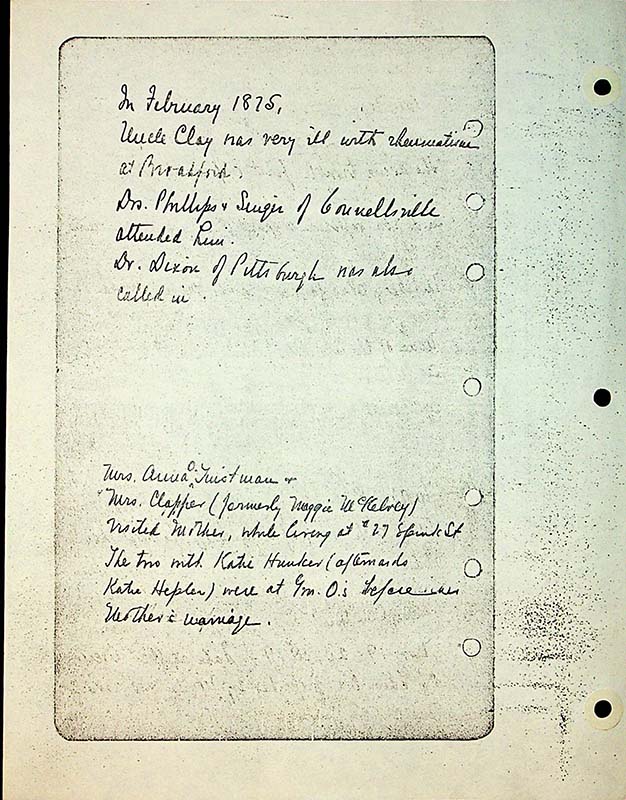 In February 1875,
Uncle Clay was very ill with rheumatism
at Broadford.
Drs. Phillips & Singer of Connellsville
attended him.
Dr. Dixon of Pittsburgh was also
called in.
Mrs. Anna O. Tinstman &
Mrs. Clapper (formerly Maggie McKelvey)
visited Mother, while living at #27 Spruk St
The two with Katie Hunker (afterwards
Katie Hepler) were at Gm. O.'s before
Mother's marriage.